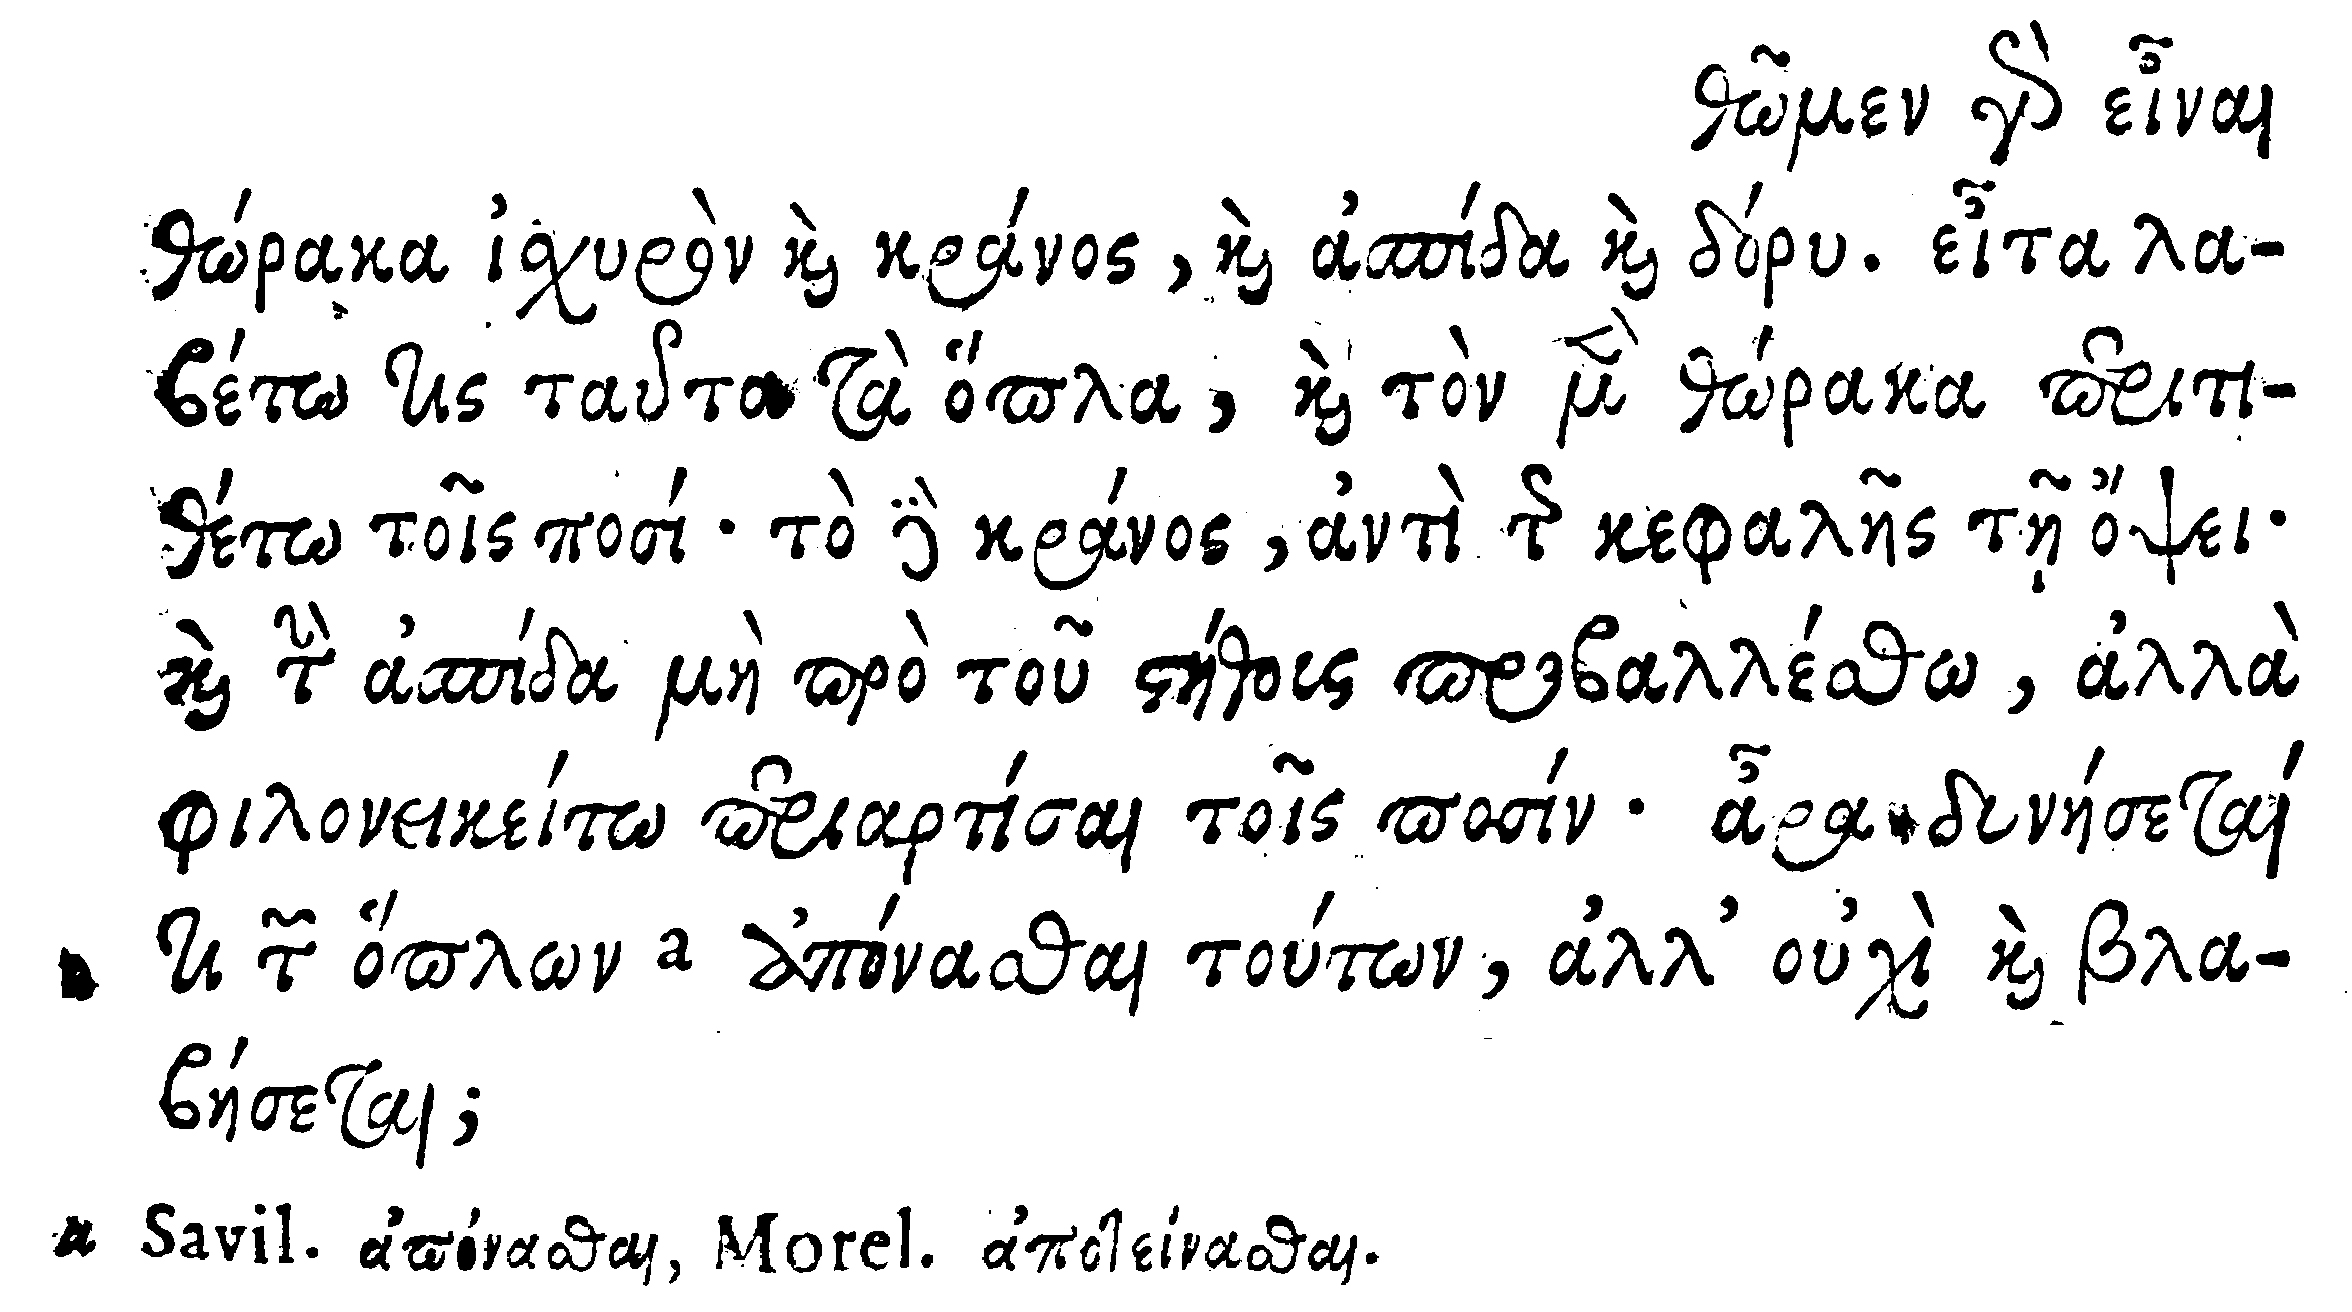 θῶμεν γὰρ εἶναι
θώρακα ἰσχυρὸν καὶ κράνος, καὶ ἀσπίδα καὶ δόρυ. εἶτα λα-
βέτω τις ταῦτα τὰ ὅπλα, καὶ τὸν μὲν θώρακα περιτι-
θέτω τοῖς ποσί· τὸ δὲ κράνος, ἀντὶ τῆς κεφαλῆς τῇ ὄψει·
καὶ τὴν ἀσπίδα μὴ πρὸ τοῦ στήθους προβαλλέσθω, ἀλλὰ
φιλονεικείτω περιαρτίσαι τοῖς ποσίν· ἆρα δυνήσεταί
τι τῶν ὅπλων a ἀπόνασθαι τούτων, ἀλλ' οὐχὶ καὶ βλα-
βήσεται;
a Savil. ἀπόνασθαι, Morel. ἀποτείνασθαι.